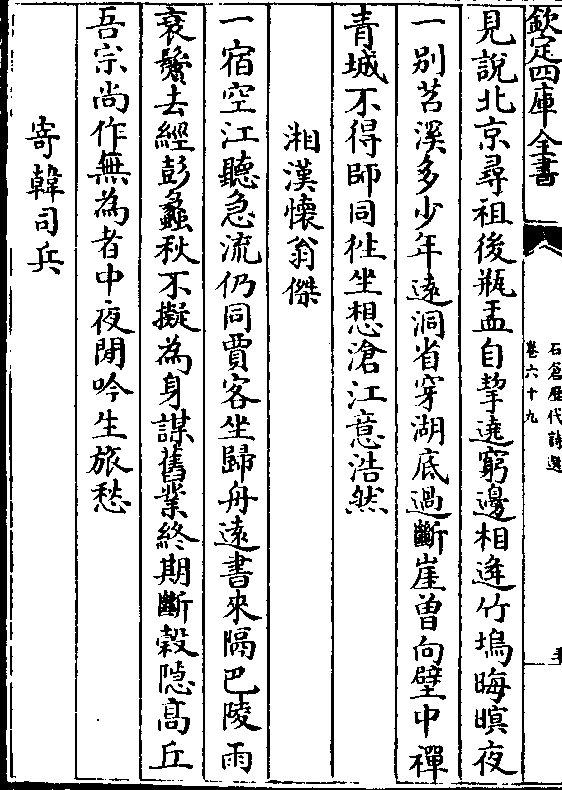 欽定四庫全書
石倉歷代詩選
卷六十九
見說北京尋祖後瓶盂自挈遶窮邊相逢竹塢晦暝夜
一別苕溪多少年遠洞省穿湖底過斷崖曾向壁中禪
青城不得師同徃坐想滄江意浩然
湘漢懷翁傑
一宿空江聽急流仍同賈客坐歸舟遠書來隔巴陵雨
衰鬢去經彭蠡秋不擬為身謀舊業終期斷穀隠高丘
吾宗尚作無為者中夜閒吟生旅愁
寄韓司兵